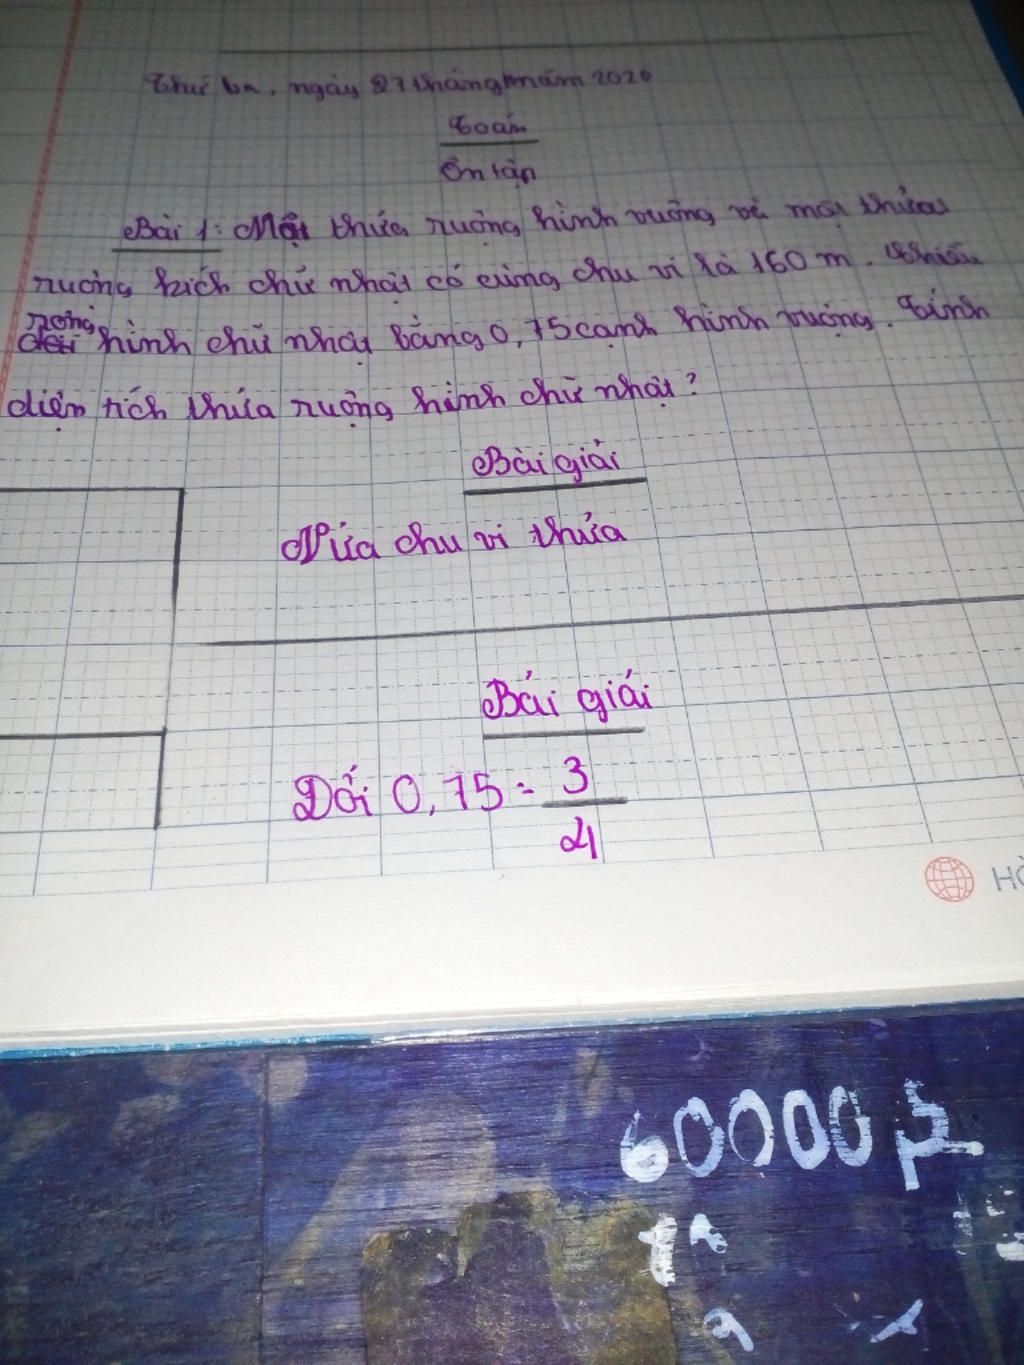 Thứ ba, ngày 27 tháng năm 2020
Toán
Ôn tập
Bài 1: Một thửa ruộng hình vuông và một thửa
ruộng hích chữ nhật có cùng chu vi là 160 m. Chiều
rộng
hình chữ nhật bằng 0,75 cạnh hình vuông. Tính
diện tích thửa ruộng hình chữ nhật?
Bài giải
Nửa chu vi thửa
Bài giải
Đổi 0,75 = 3
4
HỒ
60000